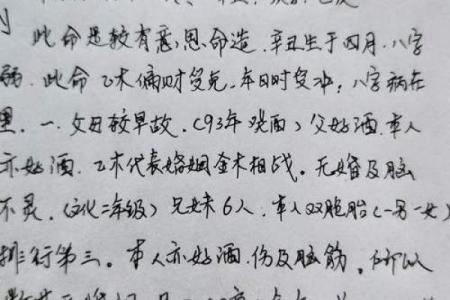 此命是较有意思命造. 辛丑生于四月. 八字
弱. 此命乙木偏财受克. 年日时受冲; 八字病在
里. 一. 父母较早故. (93年 父好酒. 本人
亦好酒. 乙木代表婚姻金木相战. 无婚及脑
不灵. (文化二年级) 兄妹6人. 本人双胞胎(一男一女)
排行第三. 本人亦好酒. 伤及脑筋. 所以